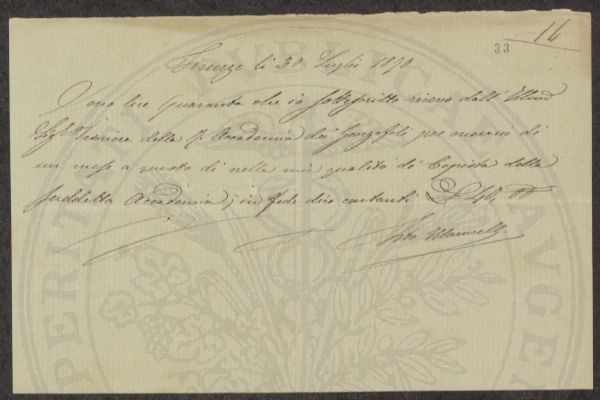 16
33
Firenze li 30 Luglio 1870
Sono lire Quaranta che io sottoscritto ricevo dall' Illmo
Sigr Tesoriere della R. Accademia dei Georgofili per onorario di
un mese a questo dì nella mia qualità di Copista della
suddetta Accademia; in fede dico contanti £ 40, 00